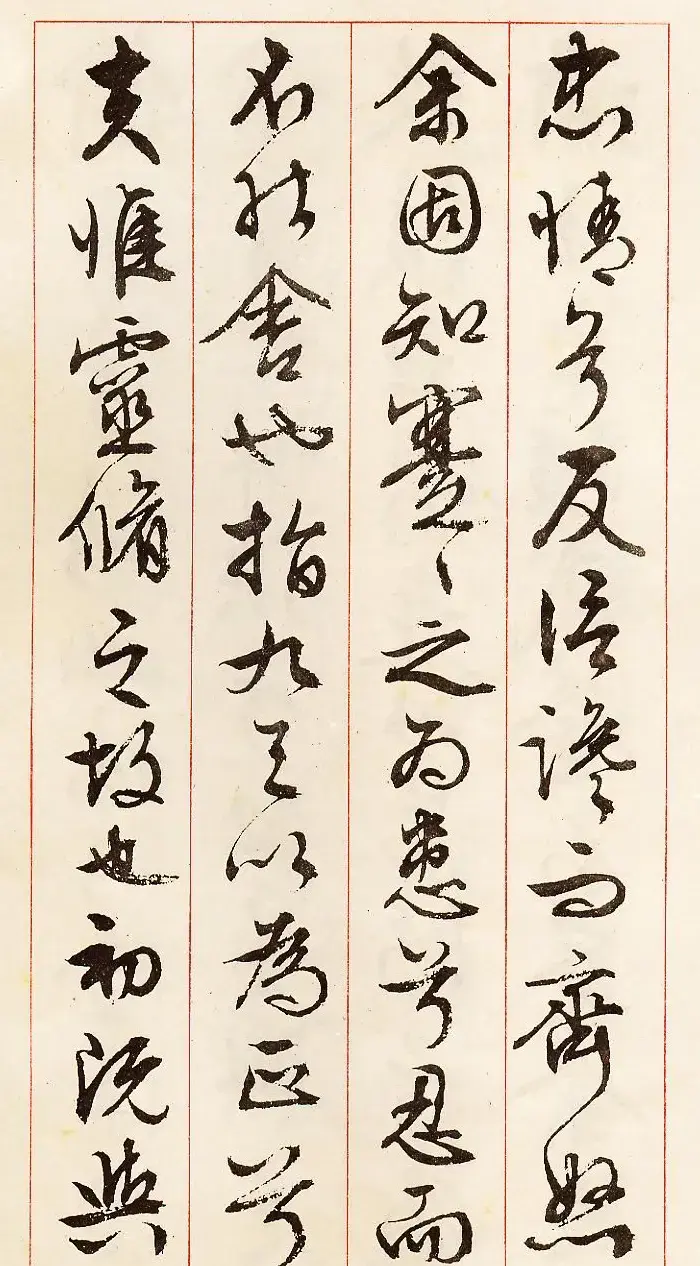 忠情兮反信讒而齊怒
余固知蹇〻之为患兮忍而
不能舍也指九天以為正兮
夫惟靈脩之故也初既與